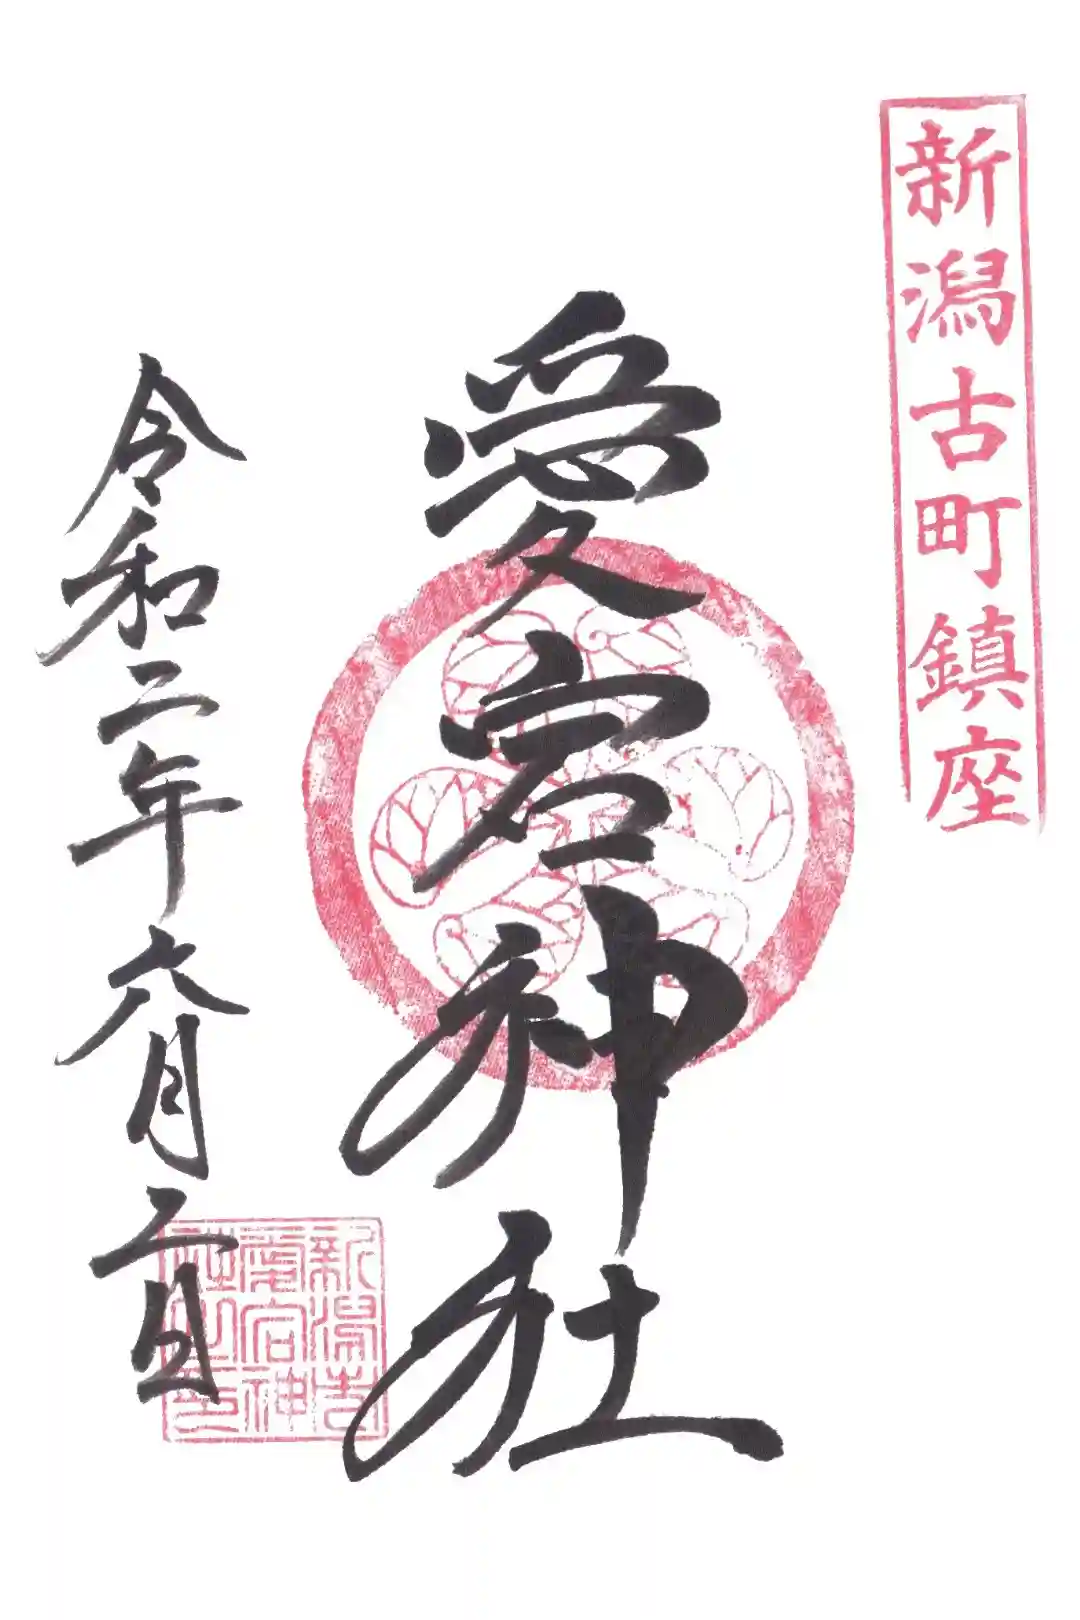 新潟古町鎮座
愛宕神社
令和二年六月二日
新潟古
愛宕神
社之印